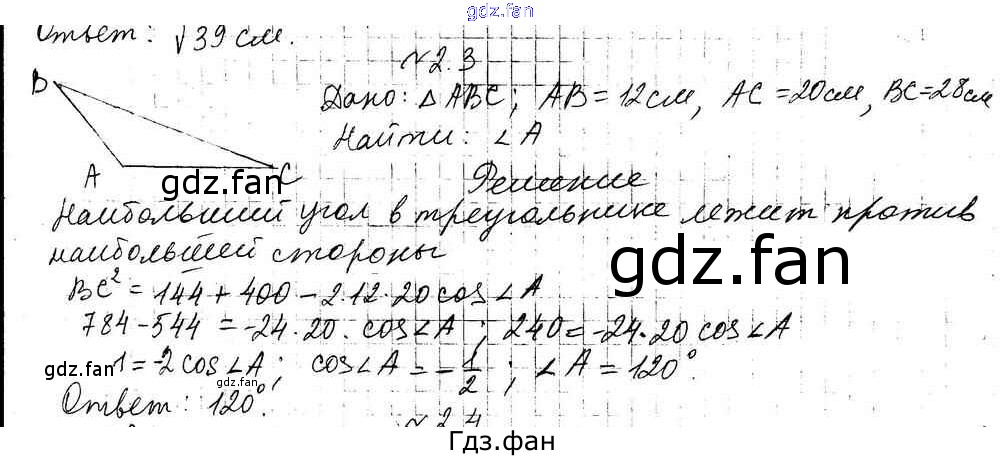 gdz.fan
Ответ: √39 см.
№2.3
B
Дано: △ABC; AB=12см, AC=20см, BC=28см
Найти: ∠A
A
C
gdz.fan
Решение
Наибольший угол в треугольнике лежит против
наибольшей стороны
gdz.fan
BC² = 144 + 400 - 2·12·20 cos ∠A
784 - 544 = -24·20·cos∠A; 240 = -24·20 cos∠A
1 = -2 cos ∠A; cos∠A = -1/2; ∠A = 120°.
gdz.fan
gdz.fan
Ответ: 120°.
№2.4
Гдз.фан